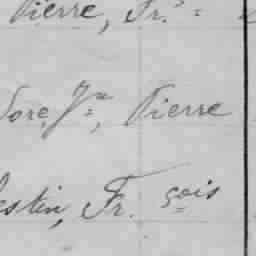 Pierre, Fr.s
dore, Jn, Pierre
estin, Fr. çois